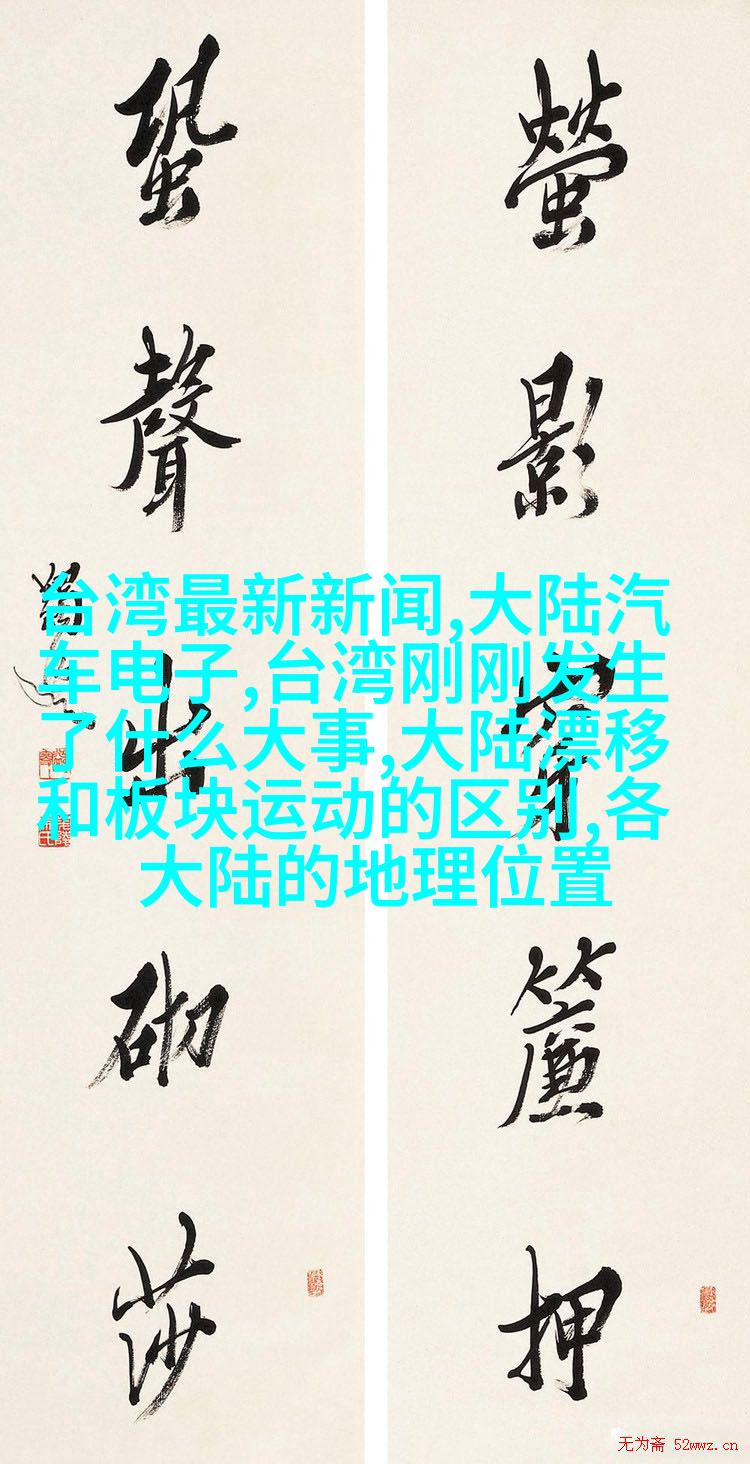 螢影穿簾押
蛩聲出砌莎
台湾最新新闻,大陆汽
车电子,台湾刚刚发生
了什么大事,大陆漂移
和板块运动的区别,各
大陆的地理位置
无为斋 52wwz.cn